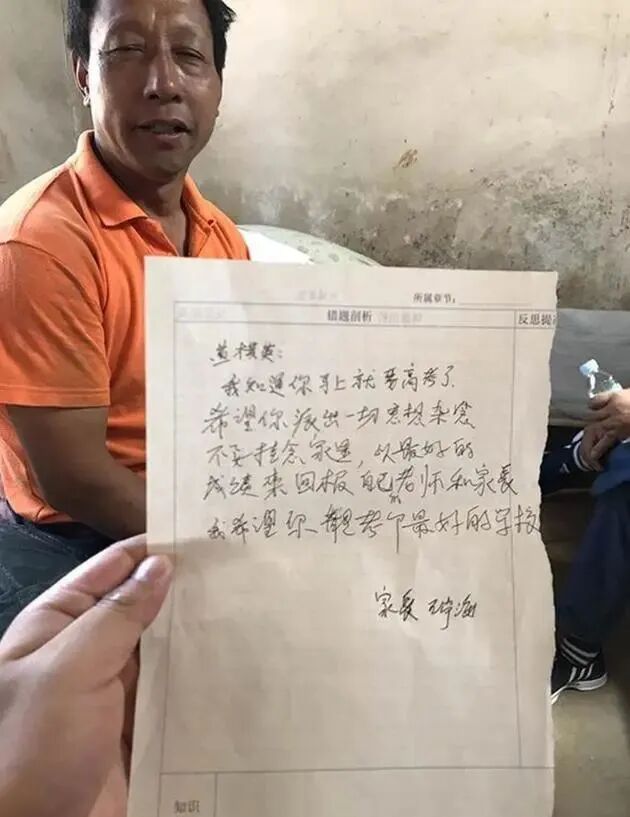 所属章节：
错题剖析 反思提
我知道你马上就要高考了
希望你派出一切思想杂念
不要挂念家里，以最好的
成绩来回报自己的老师和家长
我希望你考个最好的学校
家长
知识